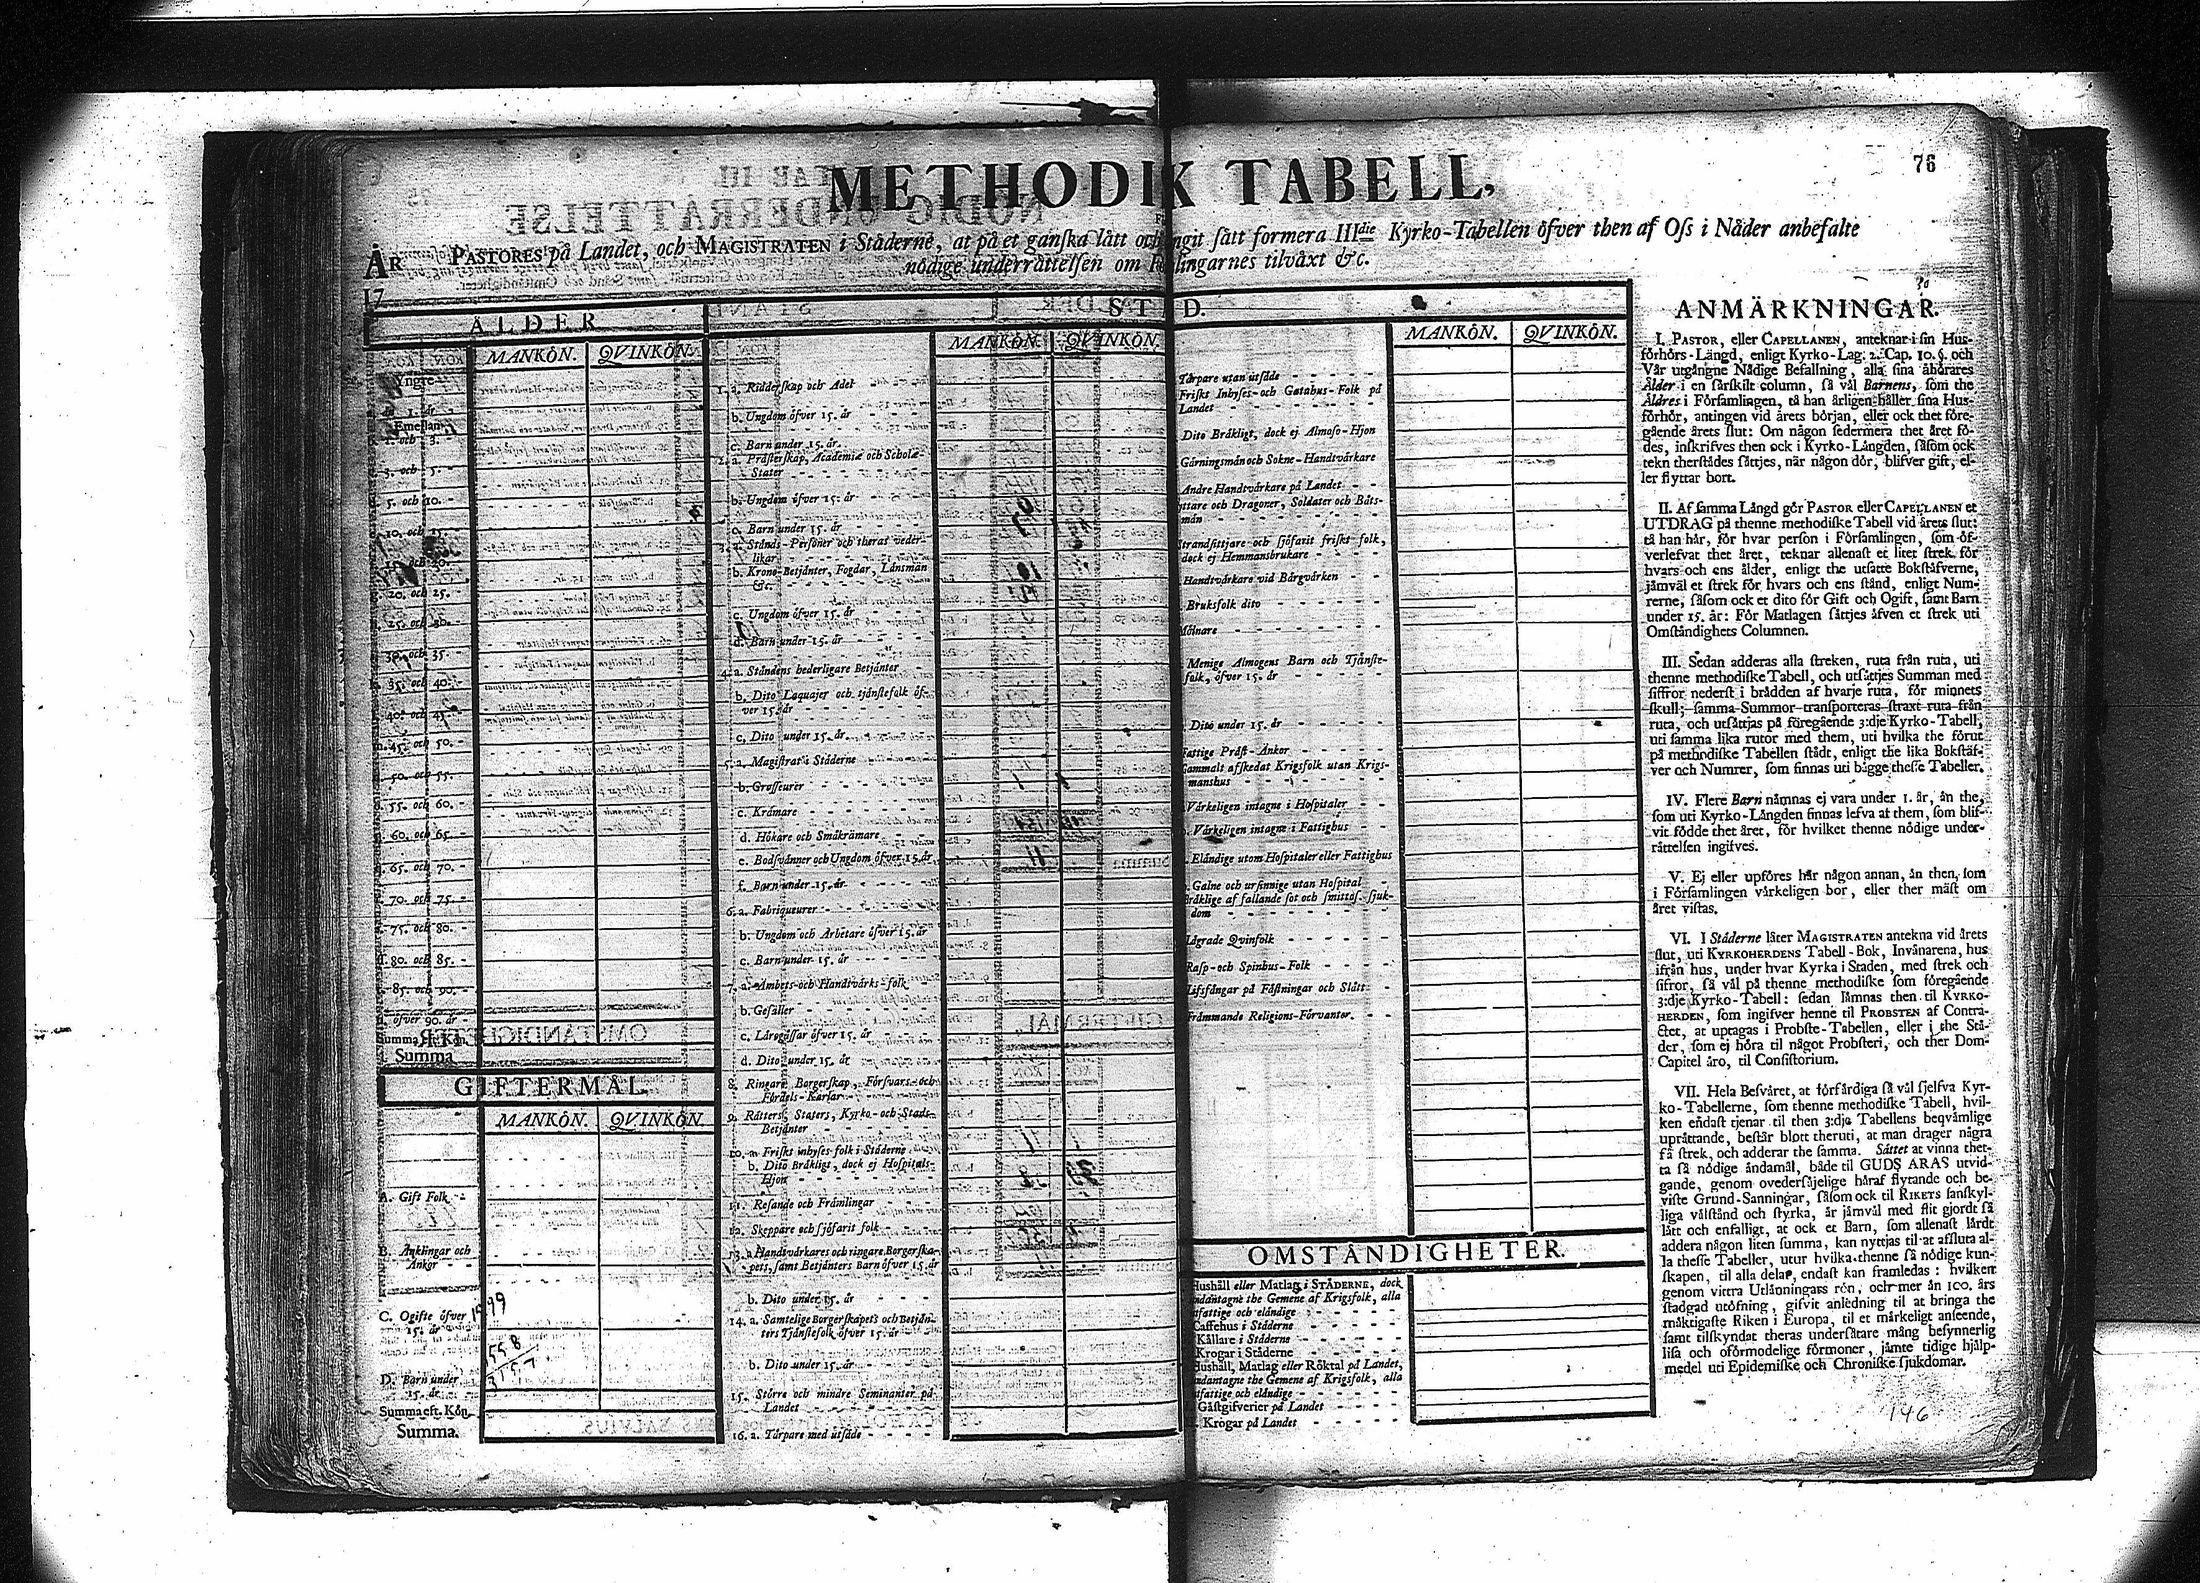 76
METHODIK TABELL,
ÅR
17
PASTORES på Landet, och MAGISTRATEN i Städerne, at på et ganska lätt och sätt formera IIIdie Kyrko-Tabellen öfver then af Oss i Nåder anbefalte
nödige underrättelsen om tilväxt &c.
ÅLDER
MANKÖN. QVINKÖN.
Yngre
1. år
Emellan
1. och 3.
3. och 5.
5. och 10.
10. och 15.
15. och 20.
20. och 25.
25. och 30.
30. och 35.
35. och 40.
40. och 45.
45. och 50.
50. och 55.
55. och 60.
60. och 65.
65. och 70.
70. och 75.
75. och 80.
80. och 85.
85. och 90.
öfver 90. år
Summa eft. Kön.
Summa
GIFTERMÅL.
MANKÖN. QVINKÖN.
A. Gift Folk
B. Änklingar och
Änkor
C. Ogifte öfver
15. år
D. Barn under
15. år
Summa eft. Kön.
Summa.
1599
1558
3157
MANKÖN. QVINKÖN.
1. a. Ridderskap och Adel
b. Ungdom öfver 15. år
c. Barn under 15. år
2. a. Prästerskap, Academiæ och Scholæ-
Stater
b. Ungdom öfver 15. år
c. Barn under 15. år
3. a. Stånds-Personer och theras veder-
likar
b. Krono-Betjänter, Fogdar, Länsmän
&c.
c. Ungdom öfver 15. år
d. Barn under 15. år
4. a. Ståndens hederligare Betjänter
b. Dito Laquajer och tjänstefolk öf-
ver 15. år
c. Dito under 15. år
5. a. Magistrat i Städerne
b. Grosseurer
c. Krämare
d. Hökare och Småkrämare
e. Bodsvänner och Ungdom öfver 15. år
f. Barn under 15. år
6. a. Fabriqueurer
b. Ungdom och Arbetare öfver 15. år
c. Barn under 15. år
7. a. Ämbets- och Handtvärks-folk
b. Gesäller
c. Lärogåssar öfver 15. år
d. Dito under 15. år
8. Ringare Borgerskap, Försvars- och
Fördels-Karlar
9. Rätters, Staters, Kyrko- och Stads-
Betjänter
10. a. Friskt inbyses folk i Städerne
b. Dito Bräkligt, dock ej Hospitals-
Hjon
11. Resande och Främlingar
12. Skeppare och sjöfarit folk
13. a. Handtvärkares och ringare Borgerska-
pets, samt Betjänters Barn öfver 15. år
b. Dito under 15. år
14. a. Samtelige Borgerskapets och Betjän-
ters Tjänstefolk öfver 15. år
b. Dito under 15. år
15. Större och mindre Seminanter på
Landet
16. a. Tärpare med utsäde
MANKÖN. QVINKÖN.
Tärpare utan utsäde
Friskt Inbyses- och Gatahus-Folk på
Landet
Dito Bräkligt, dock ej Almoso-Hjon
Gärningsmän och Sokne-Handtvärkare
Andre Handtvärkare på Landet
och Dragoner, Soldater och Båts-
män
Strandsittjare och sjöfarit friskt folk,
dock ej Hemmansbrukare
Handtvärkare vid Bärgvärken
Bruksfolk dito
Mölnare
Menige Almogens Barn och Tjänste-
folk, öfver 15. år
Dito under 15. år
Fattige Präst-Änkor
Gammalt afskedat Krigsfolk utan Krigs-
manshus
Värkeligen intagne i Hospitaler
Värkeligen intagne i Fattighus
Eländige utom Hospitaler eller Fattighus
Galne och ursinnige utan Hospital
Bräklige af fallande sot och smittos. sjuk-
dom
Lägrade Qvinfolk
Rasp- och Spinhus-Folk
Lifsfångar på Fästningar och Slått
Främmande Religions-Förvanter.
OMSTÄNDIGHETER.
Hushåll eller Matlag i STÄDERNE, dock
undantagne the Gemene af Krigsfolk, alla
utfattige och eländige
Caffehus i Städerne
Källare i Städerne
Krogar i Städerne
Hushåll, Matlag eller Röktal på Landet,
undantagne the Gemene af Krigsfolk, alla
utfattige och eländige
Gästgifverier på Landet
Krogar på Landet
ANMÄRKNINGAR.
I. PASTOR, eller CAPELLANEN, anteknar i sin Hus-
förhörs-Längd, enligt Kyrko-Lag: 2. Cap. 10. §. och
Vår utgångne Nådige Befallning, alla sina åhörares
Ålder i en särskilt column, så väl Barnens, som the
Äldres i Församlingen, tå han årligen håller sina Hus-
förhör, antingen vid årets början, eller ock thet före-
gående årets slut: Om någon sedermera thet året fö-
des, inskrifves then ock i Kyrko-Längden, såsom ock
tekn therstädes sättjes, när någon dör, blifver gift, el-
ler flyttar bort.
II. Af samma Längd gör PASTOR eller CAPELLANEN et
UTDRAG på thenne methodiske Tabell vid årets slut:
tå han här, för hvar person i Församlingen, som öf-
verlefvat thet året, teknar allenast et litet strek för
hvars och ens ålder, enligt the utsatte Bokstäfverne,
jämväl et strek för hvars och ens stånd, enligt Num-
rerne, såsom ock et dito för Gift och Ogift, samt Barn
under 15. år: För Matlagen sättjes äfven et strek uti
Omständighets Columnen.
III. Sedan adderas alla streken, ruta från ruta, uti
thenne methodiske Tabell, och utsättjes Summan med
siffror nederst i brädden af hvarje ruta, för minnets
skull; samma Summor transporteras straxt ruta från
ruta, och utsättjas på föregående 3:dje Kyrko-Tabell,
uti samma lika rutor med them, uti hvilka the förut
på methodiske Tabellen stådt, enligt the lika Bokstäf-
ver och Numrer, som finnas uti bägge thesse Tabeller.
IV. Flere Barn nämnas ej vara under 1. år, än the,
som uti Kyrko-Längden finnas lefva af them, som blif-
vit födde thet året, för hvilket thenne nödige under-
rättelsen ingifves.
V. Ej eller upföres här någon annan, än then, som
i Församlingen värkeligen bor, eller ther mäst om
året vistas.
VI. I Städerne låter MAGISTRATEN antekna vid årets
slut, uti KYRKOHERDENS Tabell-Bok, Invånarena, hus
ifrån hus, under hvar Kyrka i Staden, med strek och
sifror, så väl på thenne methodiske som föregående
3:dje Kyrko-Tabell: sedan lämnas then til KYRKO-
HERDEN, som ingifver henne til PROBSTEN af Contra-
ctet, at uptagas i Probste-Tabellen, eller i the Stä-
der, som ej höra til något Probsteri, och ther Dom-
Capitel äro, til Consistorium.
VII. Hela Besväret, at förfärdiga så väl sjelfva Kyr-
ko-Tabellerne, som thenne methodiske Tabell, hvil-
ken endast tjenar til then 3:dje Tabellens beqvämlige
uprättande, består blott theruti, at man drager några
få strek, och adderar the samma. Sättet at vinna thet-
ta så nödige ändamål, både til GUDS ÄRAS utvid-
gande, genom ovedersäjelige häraf flytande och be-
viste Grund-Sanningar, såsom ock til RIKETS sanskyl-
liga välstånd och styrka, är jämväl med flit gjordt så
lätt och enfalligt, at ock et Barn, som allenast lärdt
addera någon liten summa, kan nyttjas til at afsluta al-
la thesse Tabeller, utur hvilka thenne så nödige kun-
skapen, til alla delar, endast kan framledas: hvilken
genom vittra Utlänningars rön, och mer än 100. års
stadgad utöfning, gifvit anledning til at bringa the
mäktigaste Riken i Europa, til et märkeligt anseende,
samt tilskyndat theras undersåtare mång besynnerlig
lisa och oförmodelige förmoner, jämte tidige hjälp-
medel uti Epidemiske och Chroniske sjukdomar.
146